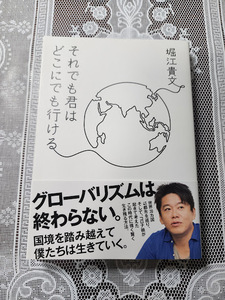 堀江貴文
それでも君は
どこにでも行ける
グローバリズムは
終わらない。
国境を踏み越えて
僕たちは生きていく。